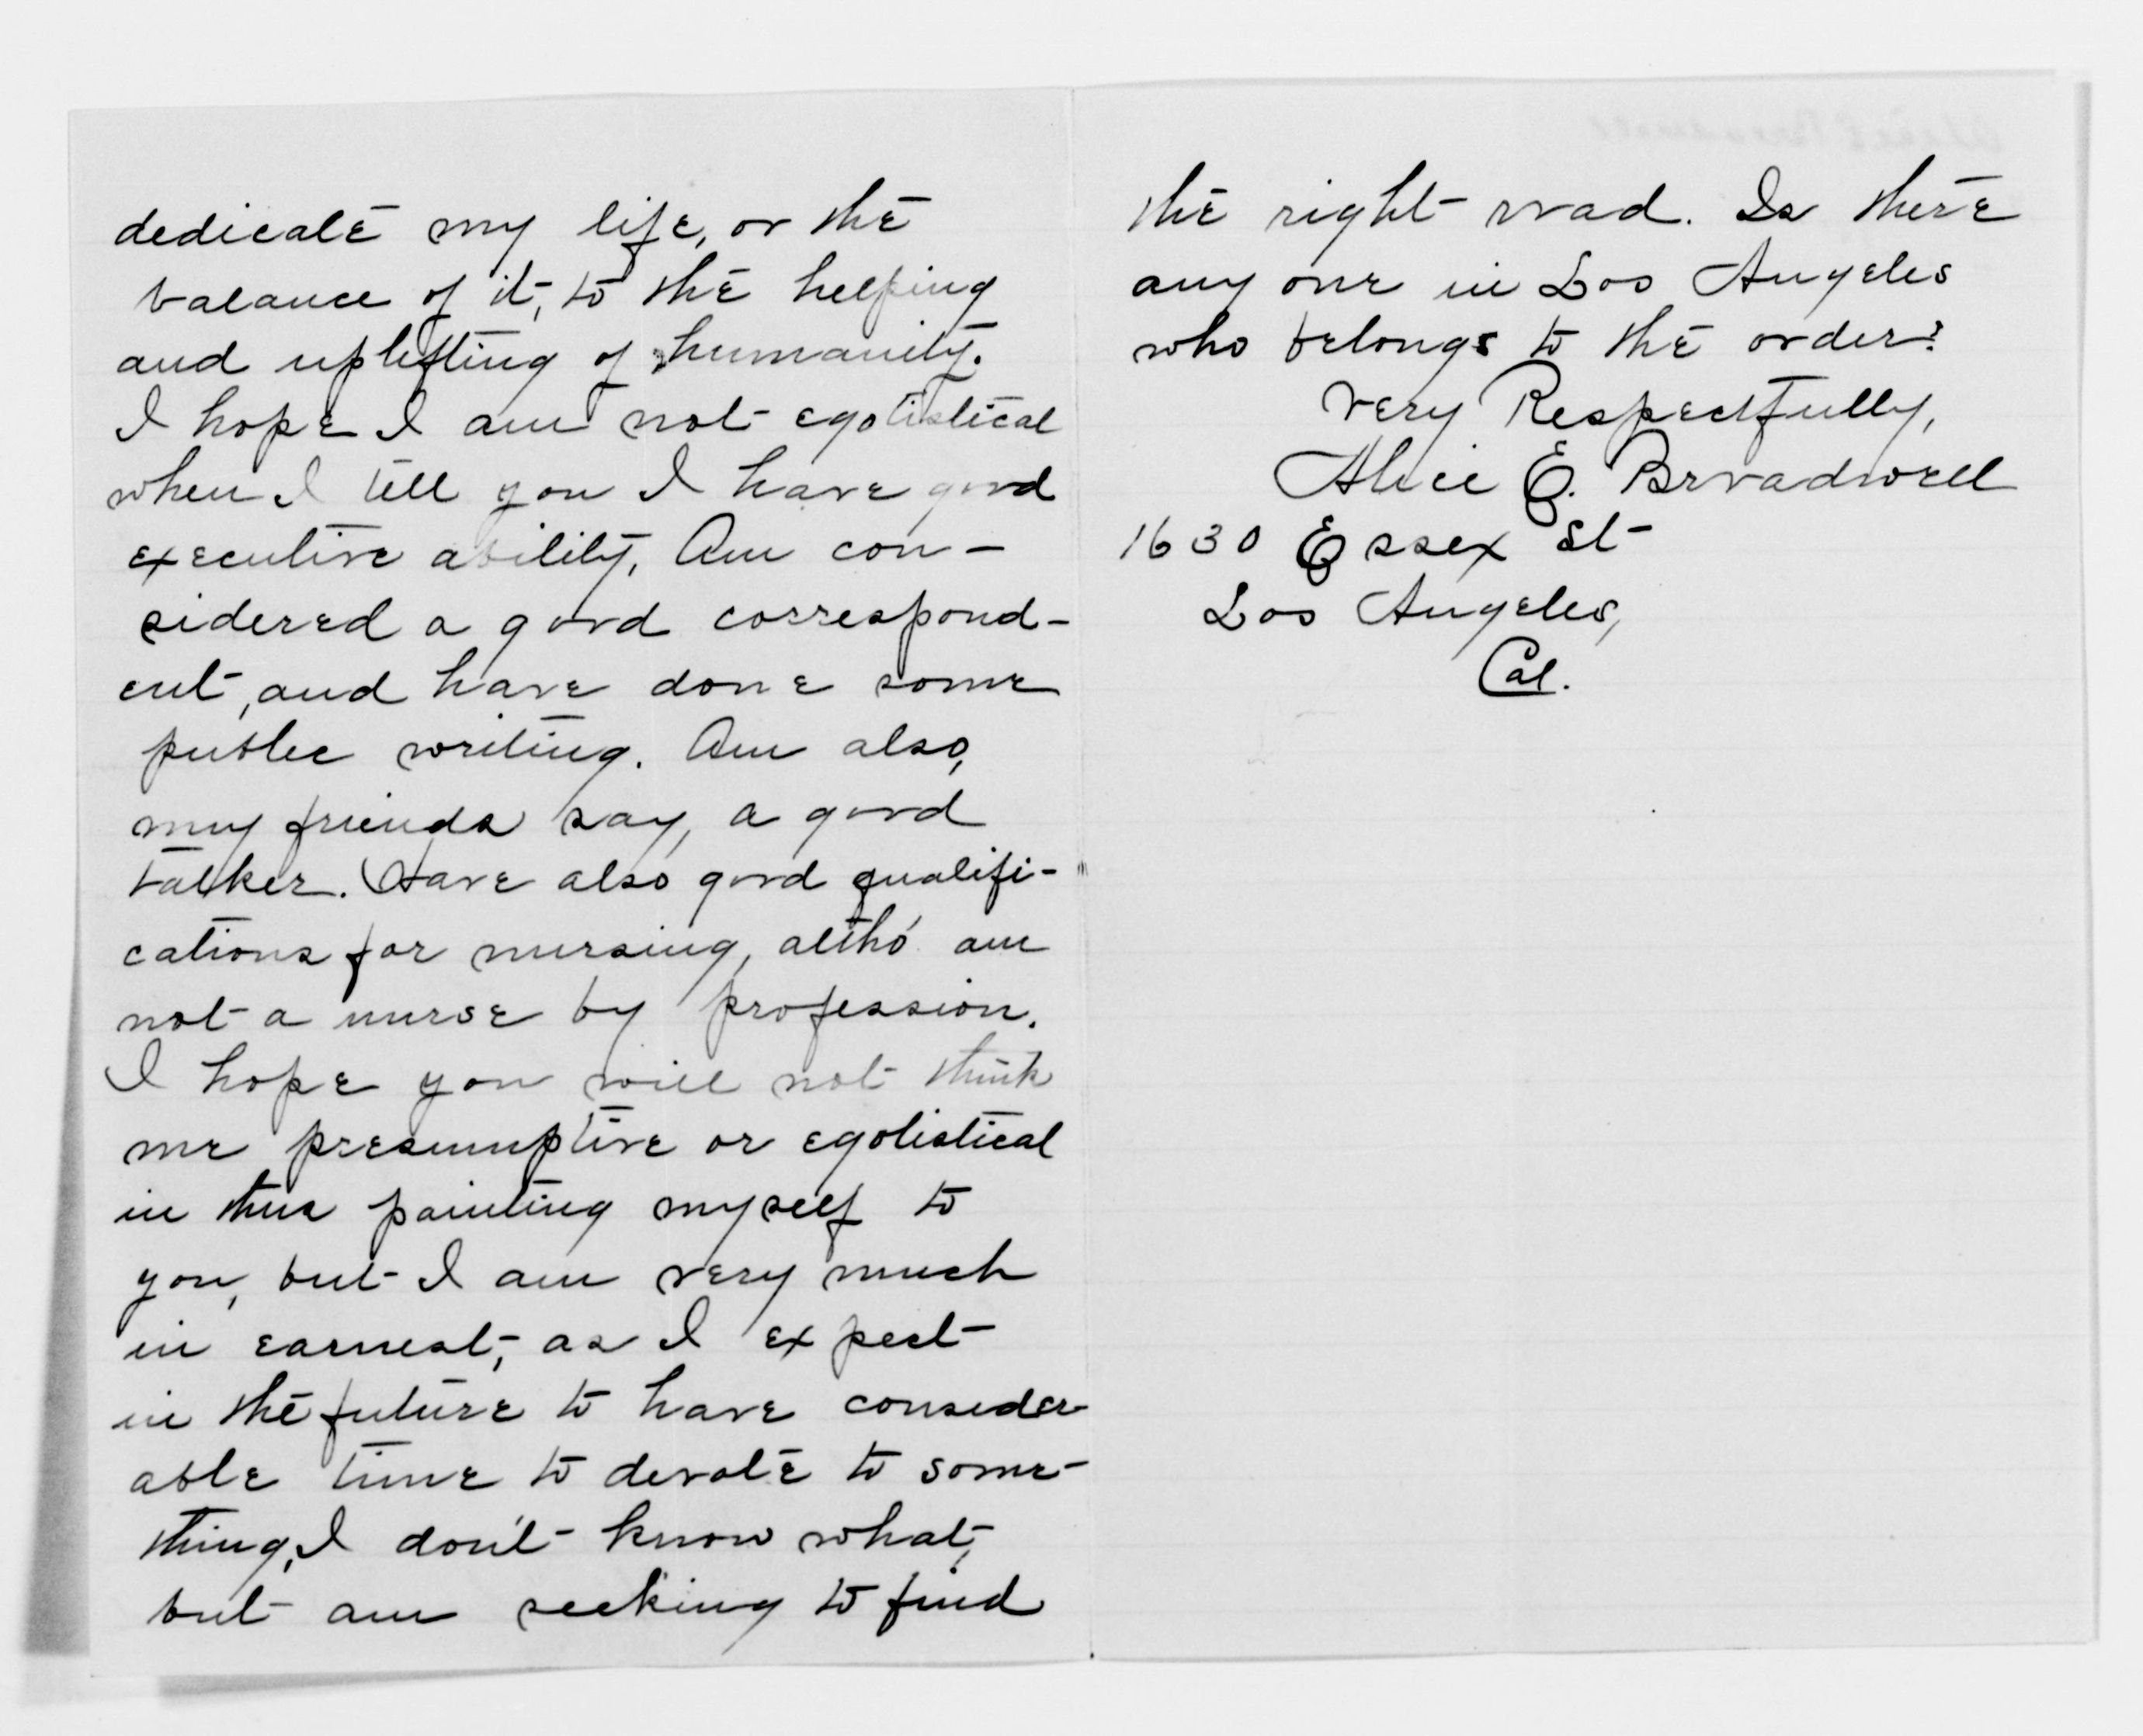 dedicate my life, or the
balance of it, to the helping
and uplifting of humanity.
I hope I am not egotistical
when I tell you I have good
executive ability, Am con-
sidered a good correspond-
ent, and have done some
public writing. Am also,
my friends say, a good
talker. Have also good qualifi-
cations for nursing, altho' am
not a nurse by profession.
I hope you will not think
me presumptive or egotistical
in thus painting myself to
you, but I am very much
in earnest, as I expect
in the future to have consider-
able time to devote to some-
thing, I don't know what,
but am seeking to find
the right road. Is there
any one in Los Angeles
who belongs to the order?
Very Respectfully,
Alice E. Broadwell
1630 Essex St
Los Angeles,
Cal.